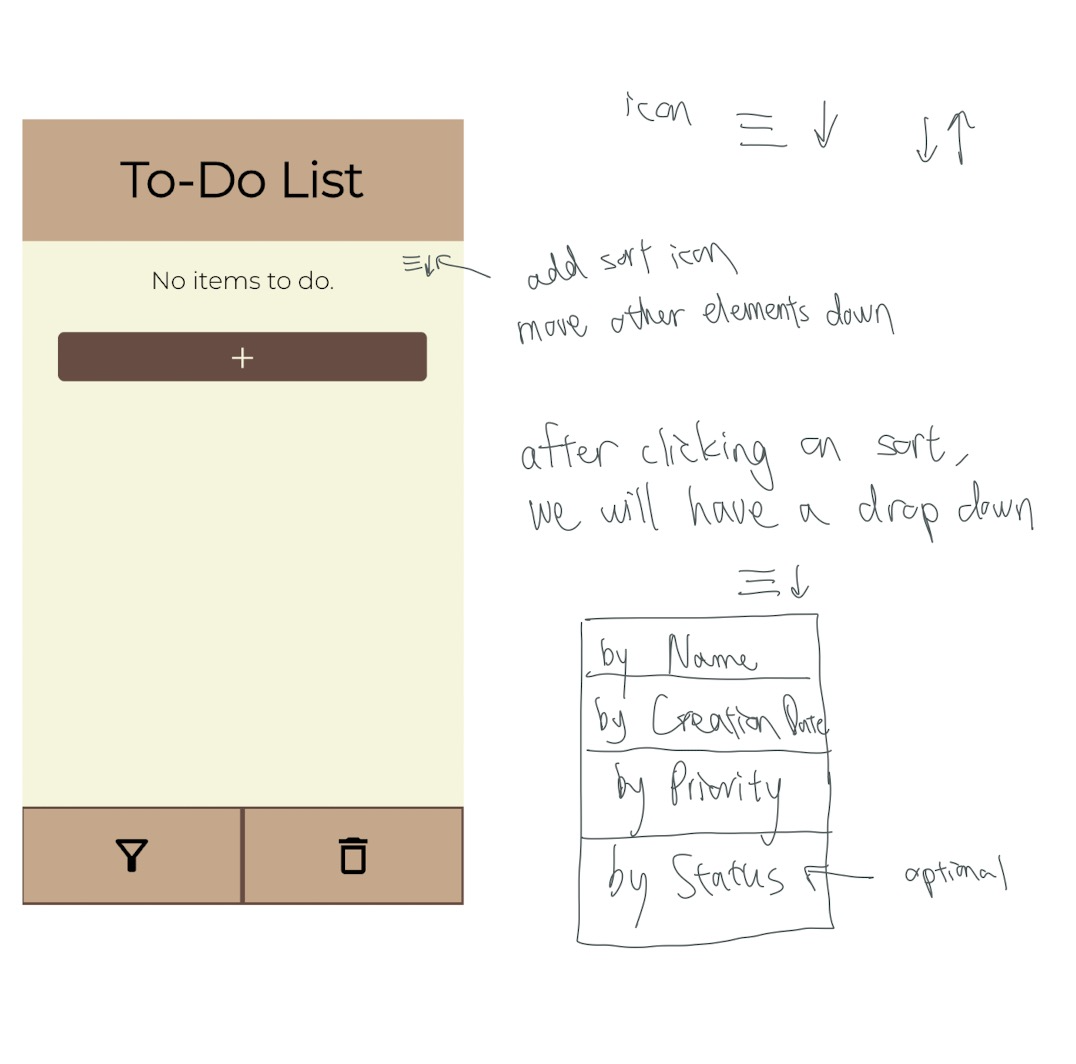 icon
To-Do List
add sort icon
No items to do.
move other elements down
+
after clicking on sort,
we will have a drop down
by Name
by Creation Date
by Priority
by Status
optional